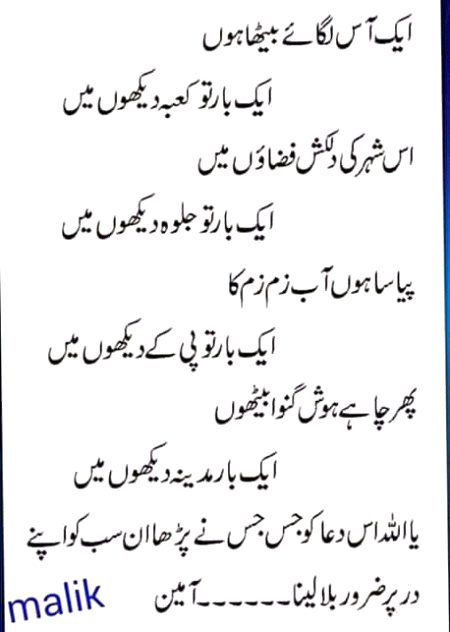 ایک آس لگائے بیٹھا ہوں
ایک بار تو کعبہ دیکھوں میں
اس شہر کی دلکش فضاؤں میں
ایک بار تو جلوہ دیکھوں میں
پیاسا ہوں آب زم زم کا
ایک بار تو پی کے دیکھوں میں
پھر چاہے ہوش گنوا بیٹھوں
ایک بار مدینہ دیکھوں میں
یا اللہ اس دعا کو جس جس نے پڑھا ان سب کو اپنے
در پر ضرور بلا لینا۔۔۔۔۔۔آمین
malik